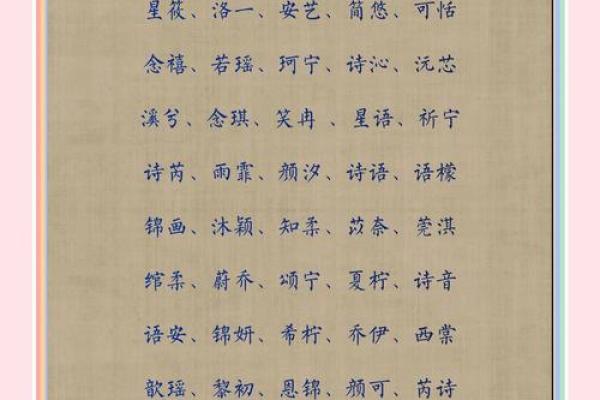 星筱、洛一、安艺、简悠、可恬
念禧、若瑶、珂宁、诗沁、沅芯
溪兮、念琪、笑冉、星语、祈宁
诗芮、雨霏、颜汐、诗语、语檬
锦画、沐颖、知柔、苡奈、莞淇
绾柔、蔚乔、颂宁、夏柠、诗音
语安、锦妍、希柠、乔伊、西棠
歆瑶、黎初、恩锦、颜可、芮诗